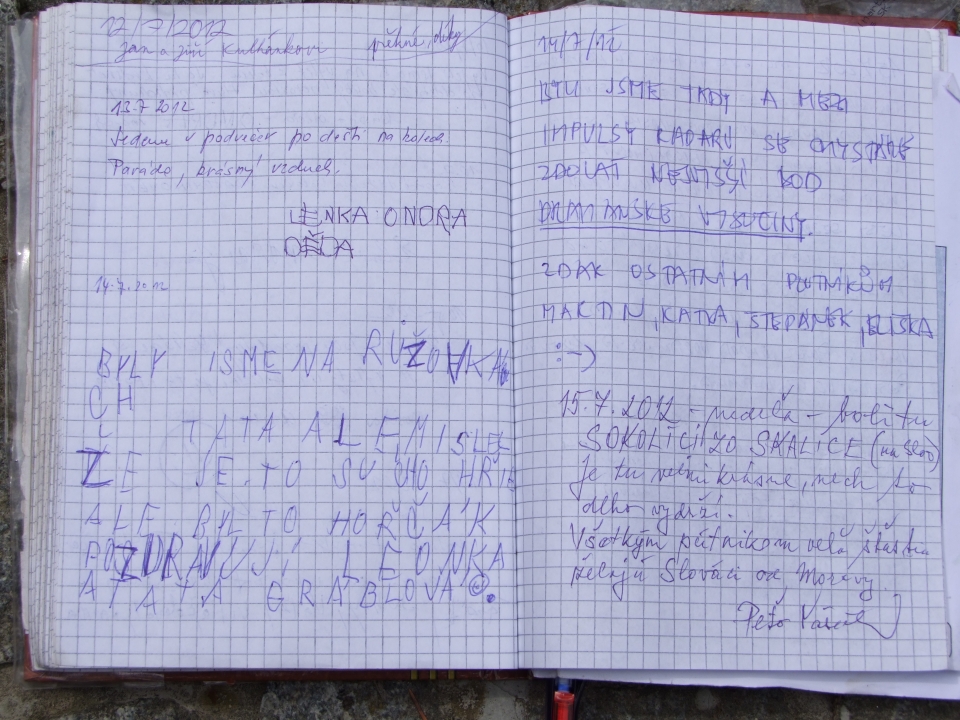 12/7/2012
Jan a Jiří Kulhánkovi pěkné, díky
13.7.2012
Jedeme v podvečer po dešti na kolech.
Parádo, krásný vzduch.
LENKA ONDRA
14.7.2012
BYLY JSME NA RŮŽOVKA
CH
TATA ALE MISLEL
ŽE JE TO SUCHO HŘIB
ALE BYL TO HOŘČÁK
POZDRAVUJÍ LEONKA
A TATA GRABLOVA ☺.
14/7/12
BYLI JSME TADY A
IMPULSY RADARŮ SE CHYSTÁME
ZDOLAT NEJVYŠŠÍ BOD
DRAHANSKÉ VYSOČINY.
ZDAR OSTATNÍM POUTNÍKŮM
MARTIN, KATKA, ŠTĚPÁNEK, ELIŠKA
:-)
15.7.2012 - nedeľa - boli tu
SOKOLÍCI ZO SKALICE (na Slov)
Je tu veľmi krásne, nech to
dlho vydrží.
Všetkým pútnikom veľa šťastia
želajú Slováci od Moravy.
Peťo